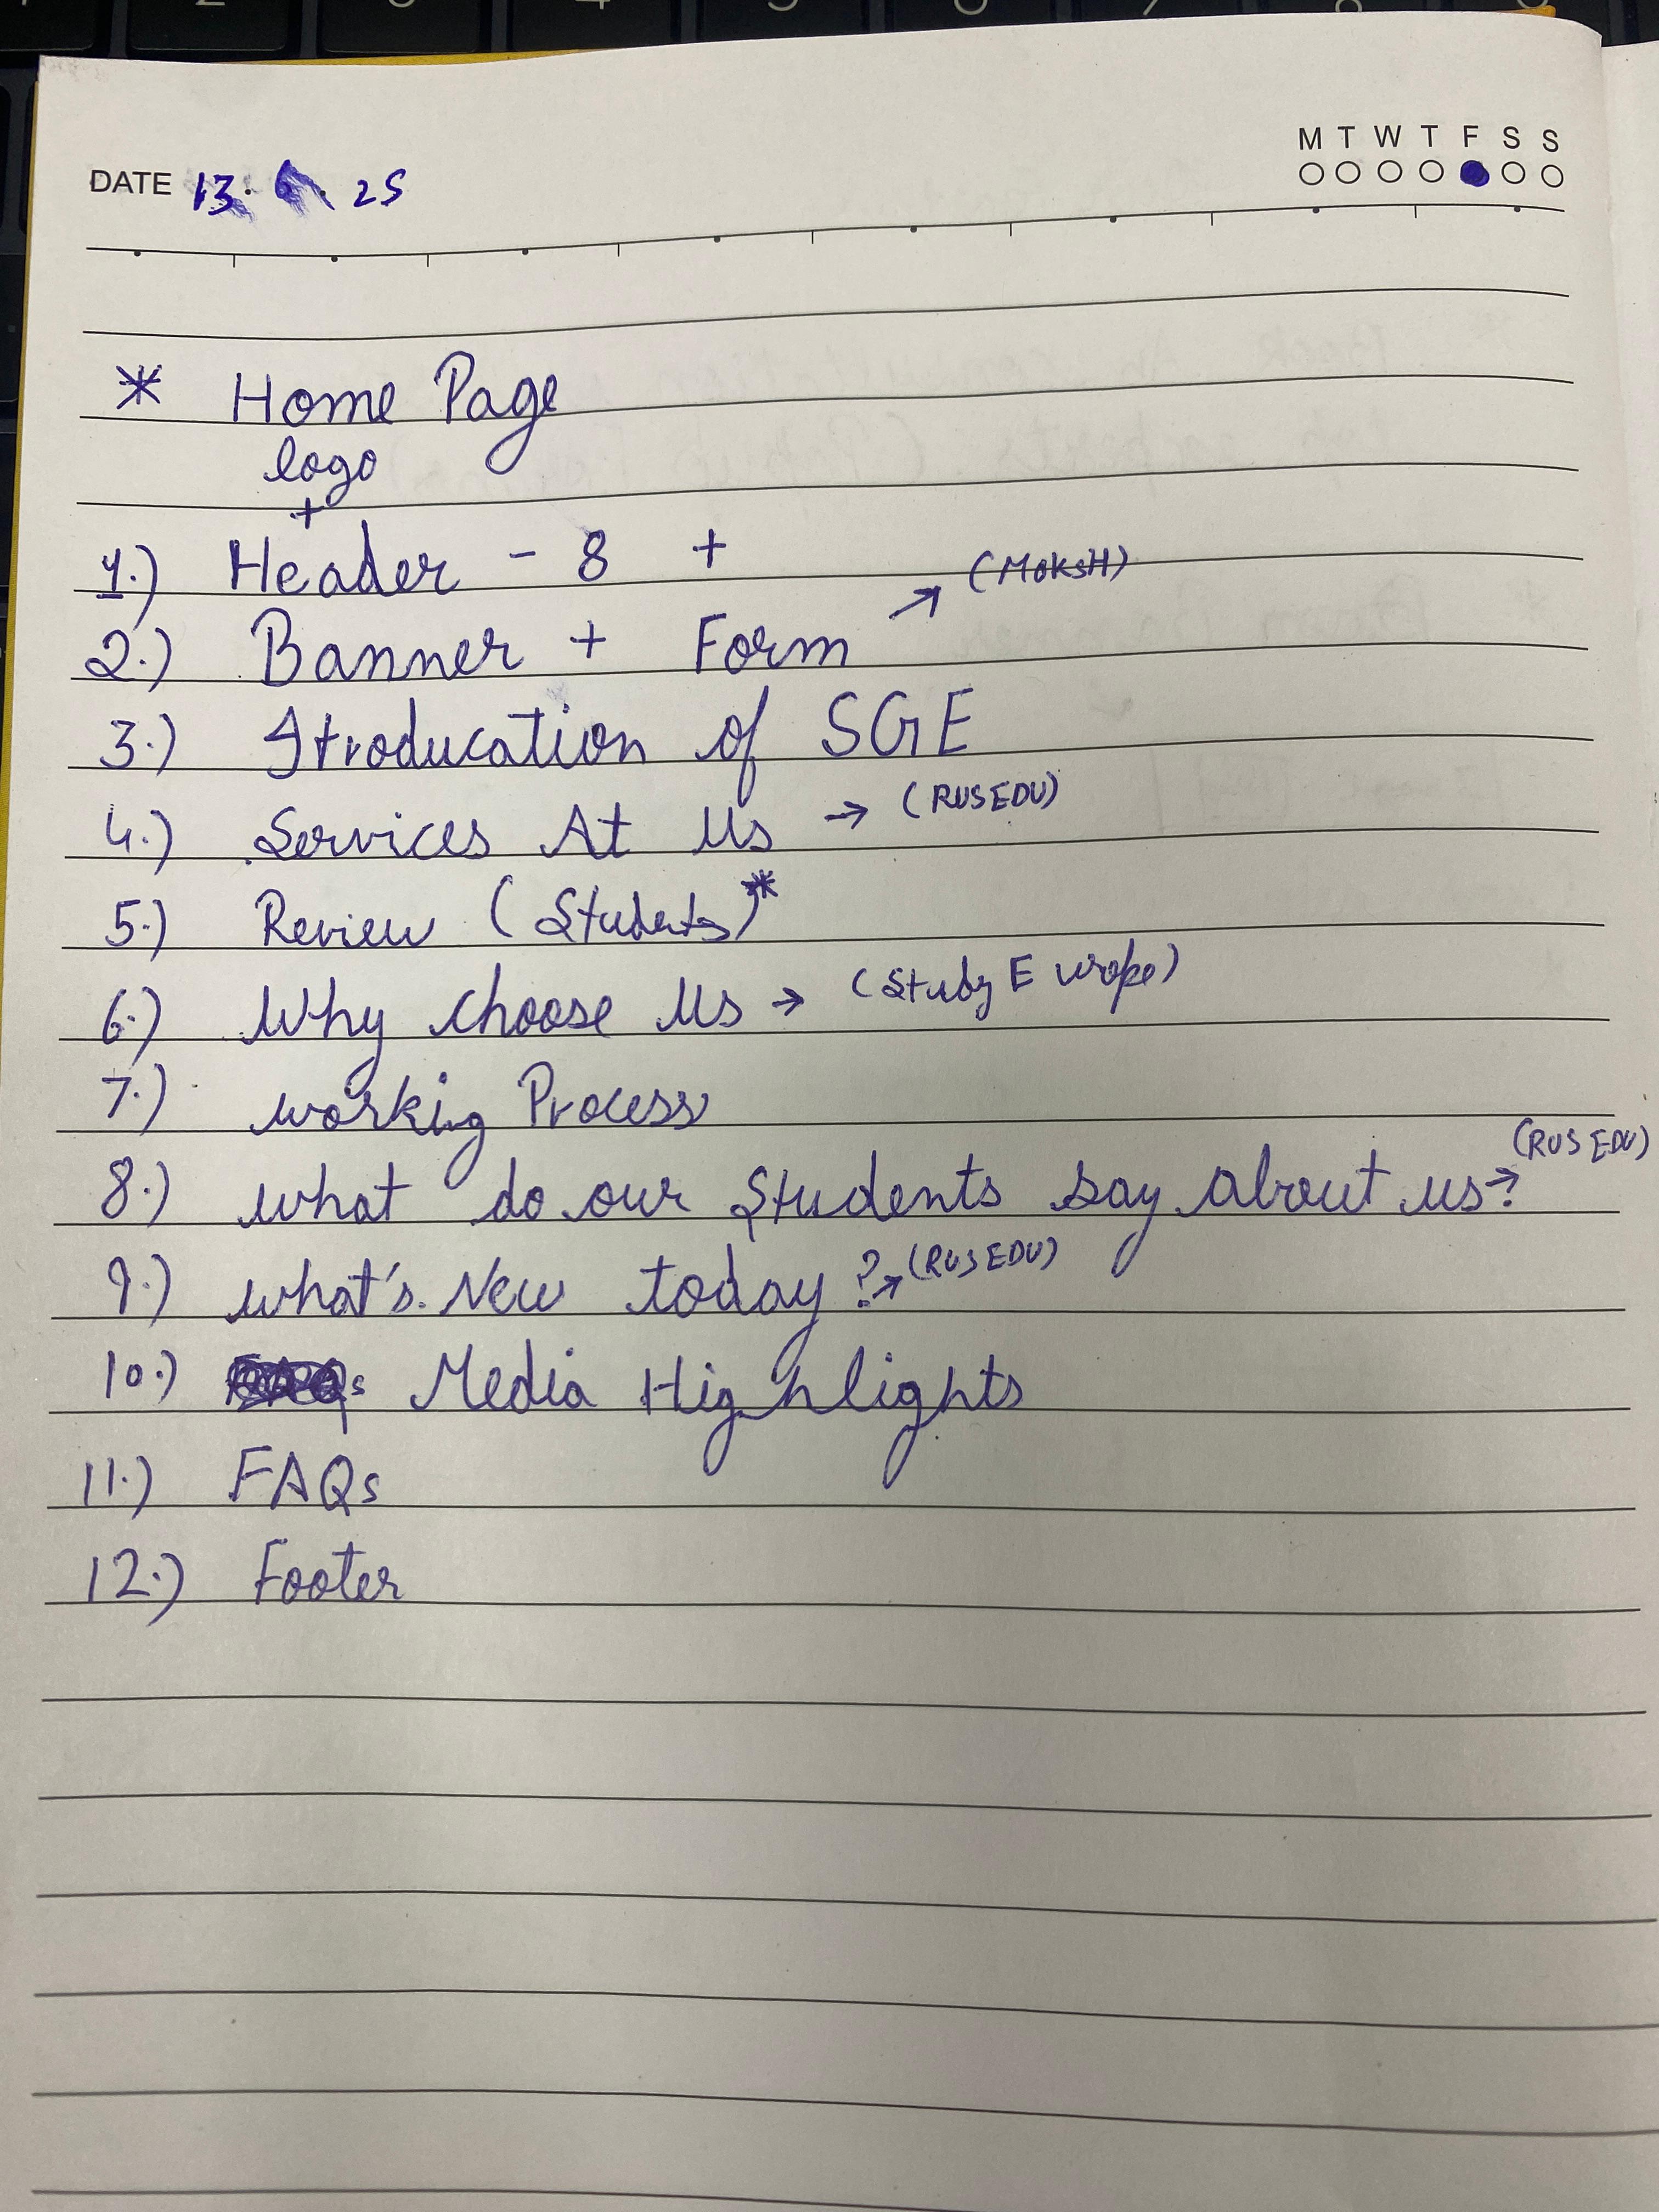 M T W T F S S
DATE 13. 25
* Home Page
logo
+
1.) Header - 8 +
2.) Banner + Form → (MOKSH)
3.) Itroducation of SGE
4.) Services At Us → (RUSEDU)
5.) Review (Students)*
6.) Why choose Us → (Study Europe)
7.) working Process
8.) what do our Students say about us? → (RUSEDU)
9.) what's New today? → (RUSEDU)
10.) Media Highlights
11.) FAQs
12.) Footer